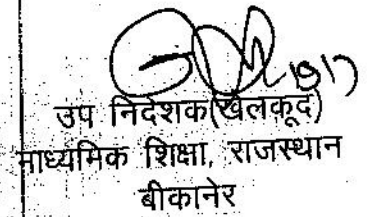 उप निदेशक(खेलकूद)
माध्यमिक शिक्षा, राजस्थान
बीकानेर